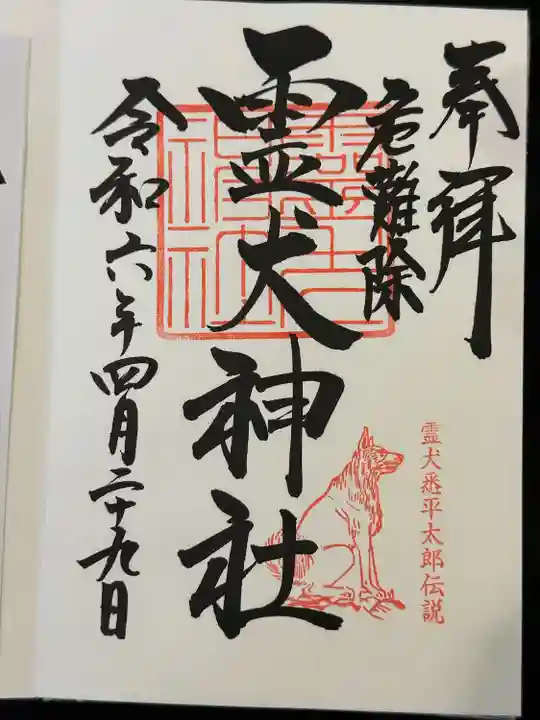 奉拝
危難除
霊犬神社
令和六年四月二十九日
霊犬悉平太郎伝説